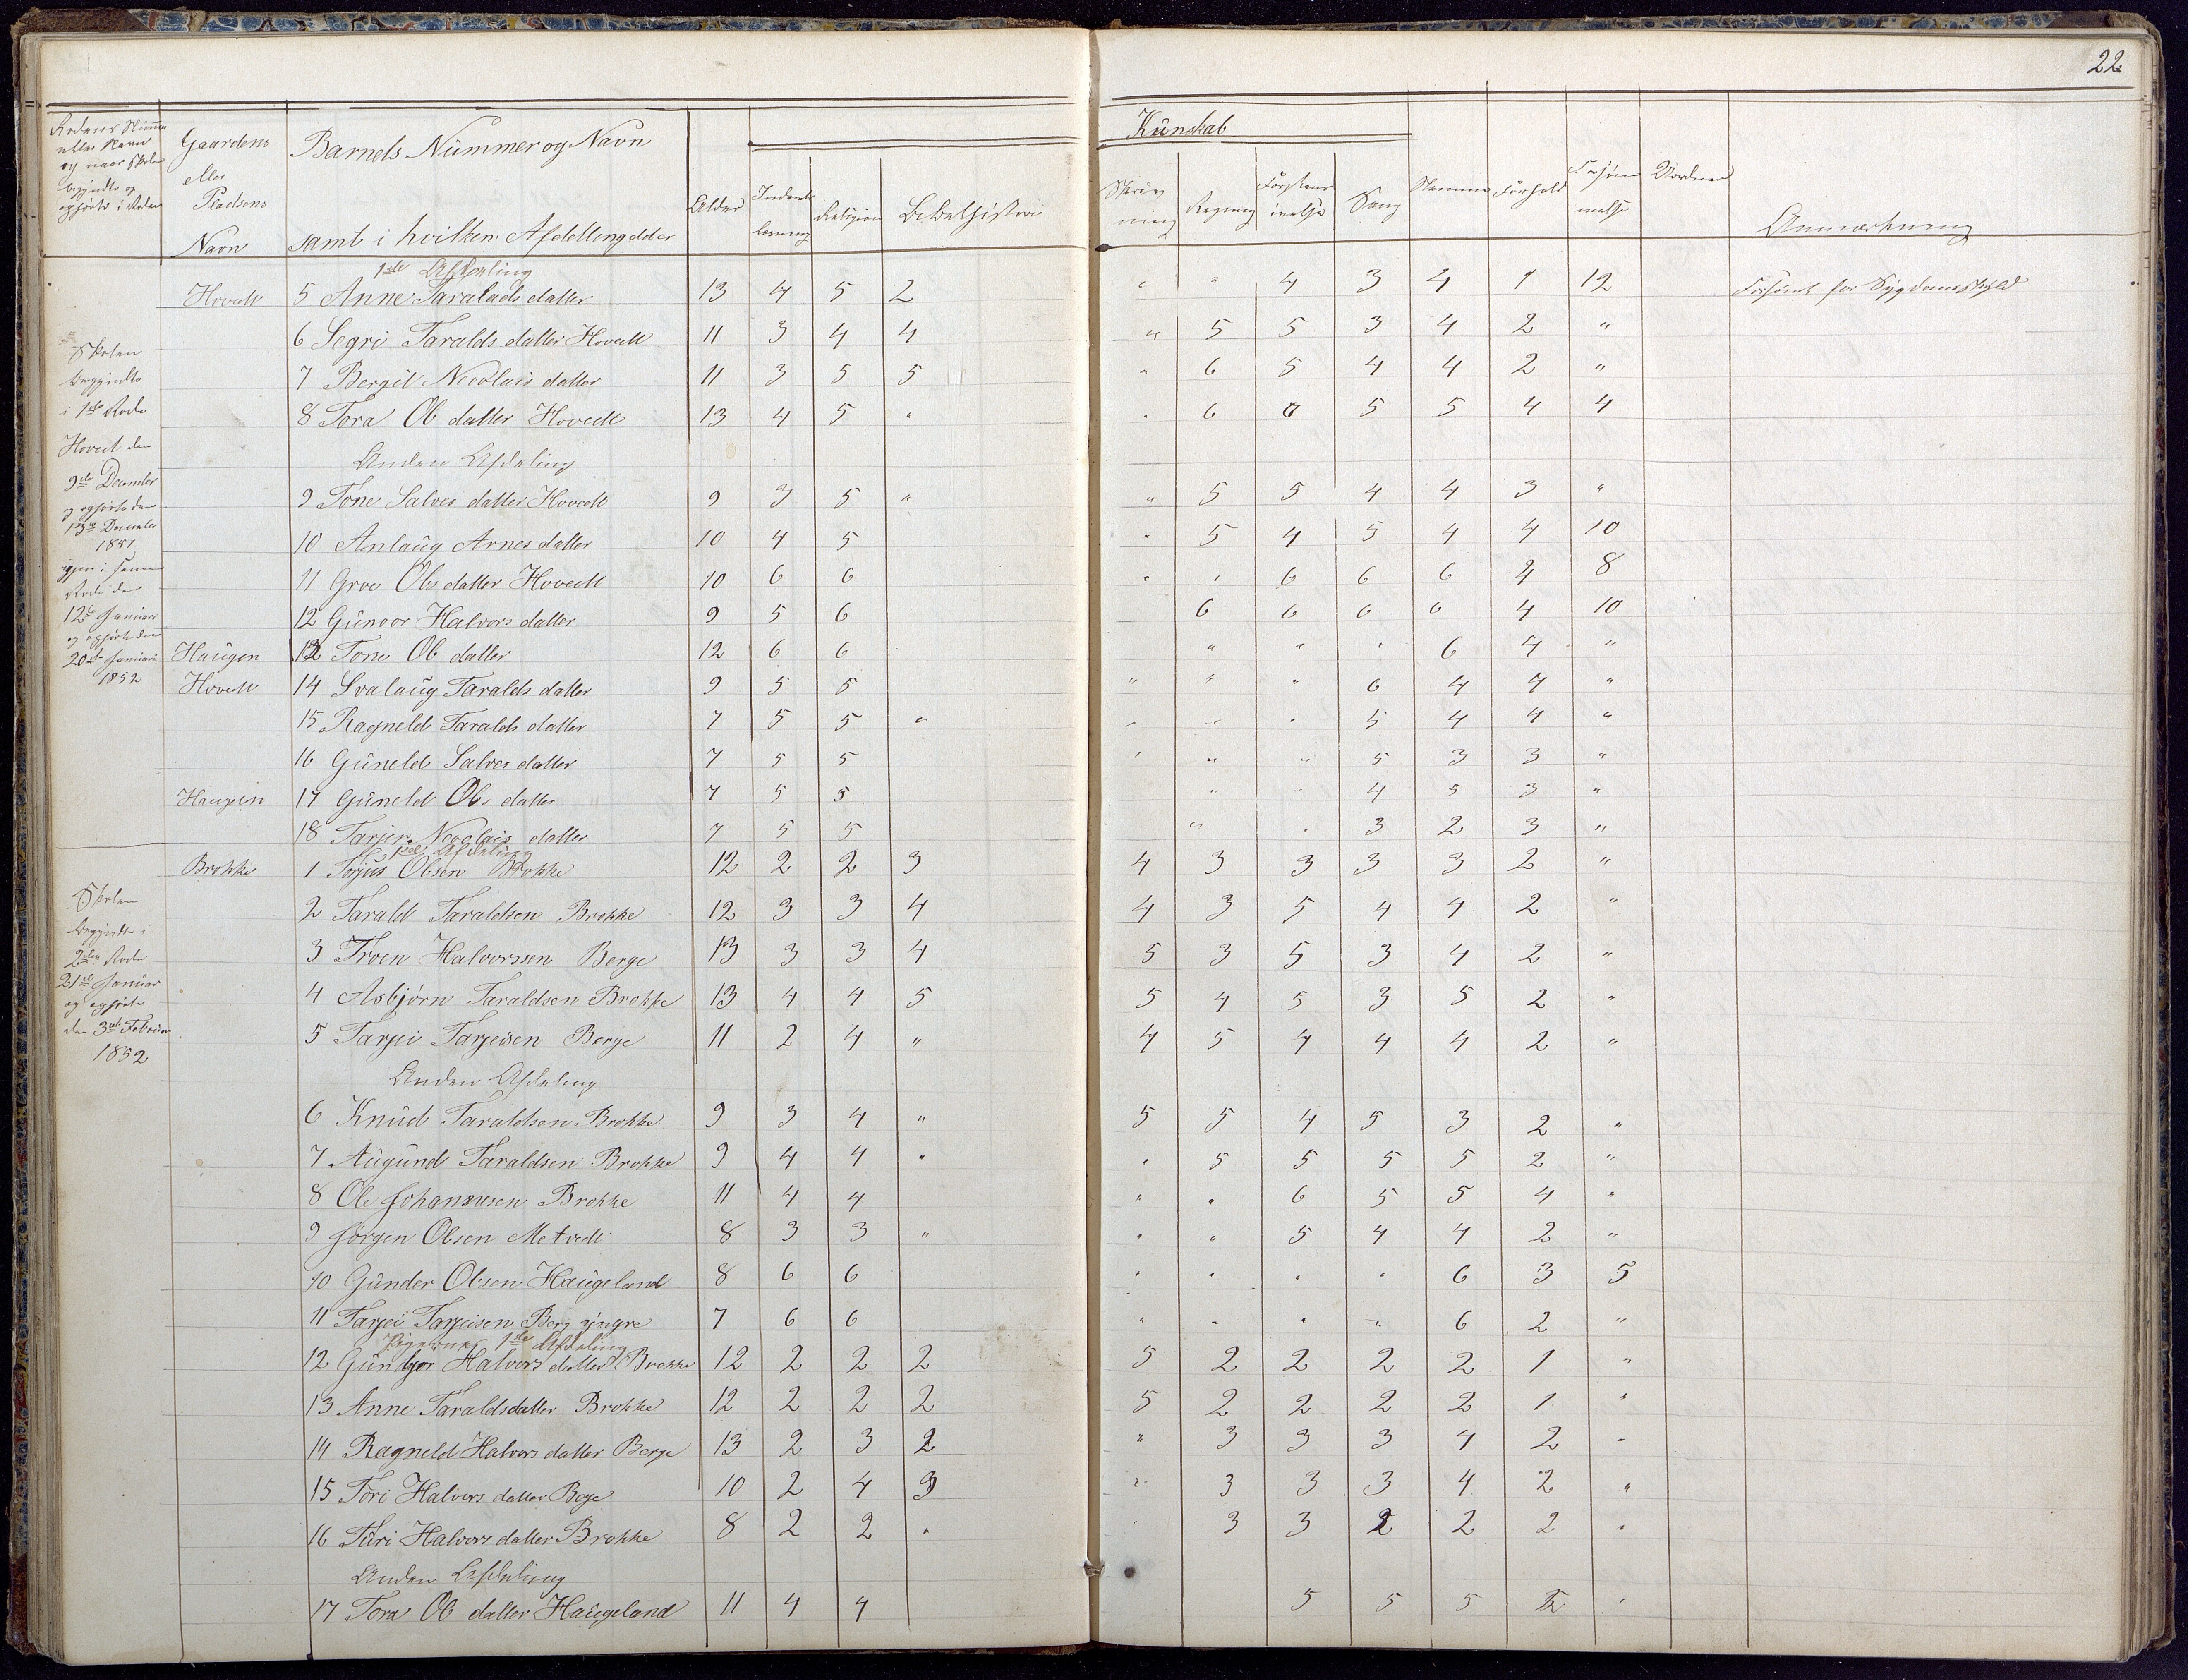 22
Rodens Numer eller Navn og naar Skolen begyndte og ophørte i Roden
Gaardens eller Pladsens Navn
Barnets Nummer og Navn samt i hvilken Afdelling det er
Alder
Religion
Kundskab
Skrivning
Regning
Sang
Stemme
Forhold
Forsømmelse
Anmærkning
1ste Afdeling
Hovedt 5 Anne Taralds datter 13 4 5 2 " " 4 3 4 1 12 Forsømt for Sygdoms skyld
6 Segri Taralds datter Hovedt 11 3 4 4 " 5 5 3 4 2 "
7 Bergit Nicolais datter 11 3 5 5 " 6 5 4 4 2 "
8 Tora Ols datter Hovedt 13 4 5 " " 6 6 5 5 4 4
Anden Afdeling
9 Tone Salves datter Hovedt 9 3 5 " " 5 5 4 4 3 "
10 Anlaug Arnes datter 10 4 5 " 5 4 5 4 4 10
11 Groe Ols datter Hovedt 10 6 6 " " 6 6 6 4 8
12 Gunvor Halvors datter 9 5 6 6 6 6 6 4 10
Haugen 12 Tone Ols datter 12 6 6 " " " 6 4 "
Hovedt 14 Svalaug Taralds datter 9 5 5 " " " 6 4 4 "
15 Ragneld Taralds datter 7 5 5 " " " " 5 4 4 "
16 Guneld Salves datter 7 5 5 " " " 5 3 3 "
Haugen 17 Guneld Ols datter 7 5 5 " " 4 5 3 "
18 Nicolais datter 7 5 5 " " 3 2 3 "
Skolen begyndte i 1ste Rode Hovedt den 9de December og ophørte den 13de December 1851 igjen i samme Rode den 12te Januari og ophørte den 20de Januari 1852
1ste Afdeling
Brokke 1 Torjus Olsen Brokke 12 2 2 3 4 3 3 3 3 2 "
2 Tarald Taraldsen Brokke 12 3 3 4 4 3 5 4 4 2 "
3 Troen Halvorssen Berge 13 3 3 4 5 3 5 3 4 2 "
4 Asbjørn Taraldsen Brokke 13 4 4 5 5 4 5 3 5 2 "
5 Tarjei Tarjeisen Berge 11 2 4 " 4 5 4 4 4 2 "
Skolen begyndte i 2den Rode 21de Januar og ophørte den 3die Februar 1852
Anden Afdeling
6 Knud Taraldsen Brokke 9 3 4 " 5 5 4 5 3 2 "
7 Augund Taraldsen Brokke 9 4 4 " " 5 5 5 5 2 "
8 Ole Johannesen Brokke 11 4 4 " " 6 5 5 4 "
9 Jörgen Olsen Metvedt 8 3 3 " " " 5 4 4 2 "
10 Gunder Olsen Haugeland 8 6 6 " " " " 6 3 5
11 Tarjei Tarjeisen Berg yngre 7 6 6 " " " " 6 2 "
Pigernes 1ste Afdeling
12 Gunbjør Halvors datter Brokke 12 2 2 2 5 2 2 2 2 1 "
13 Anne Taraldsdatter Brokke 12 2 2 2 5 2 2 2 2 1 "
14 Ragneld Halvors datter Berge 13 2 3 2 " 3 3 3 4 2 "
15 Tori Halvors datter Berge 10 2 4 3 " 3 3 3 4 2 "
16 Turi Halvors datter Brokke 8 2 2 " " 3 3 2 2 2 "
Anden Afdeling
17 Tora Ols datter Haugeland 11 4 4 5 5 5 2 "